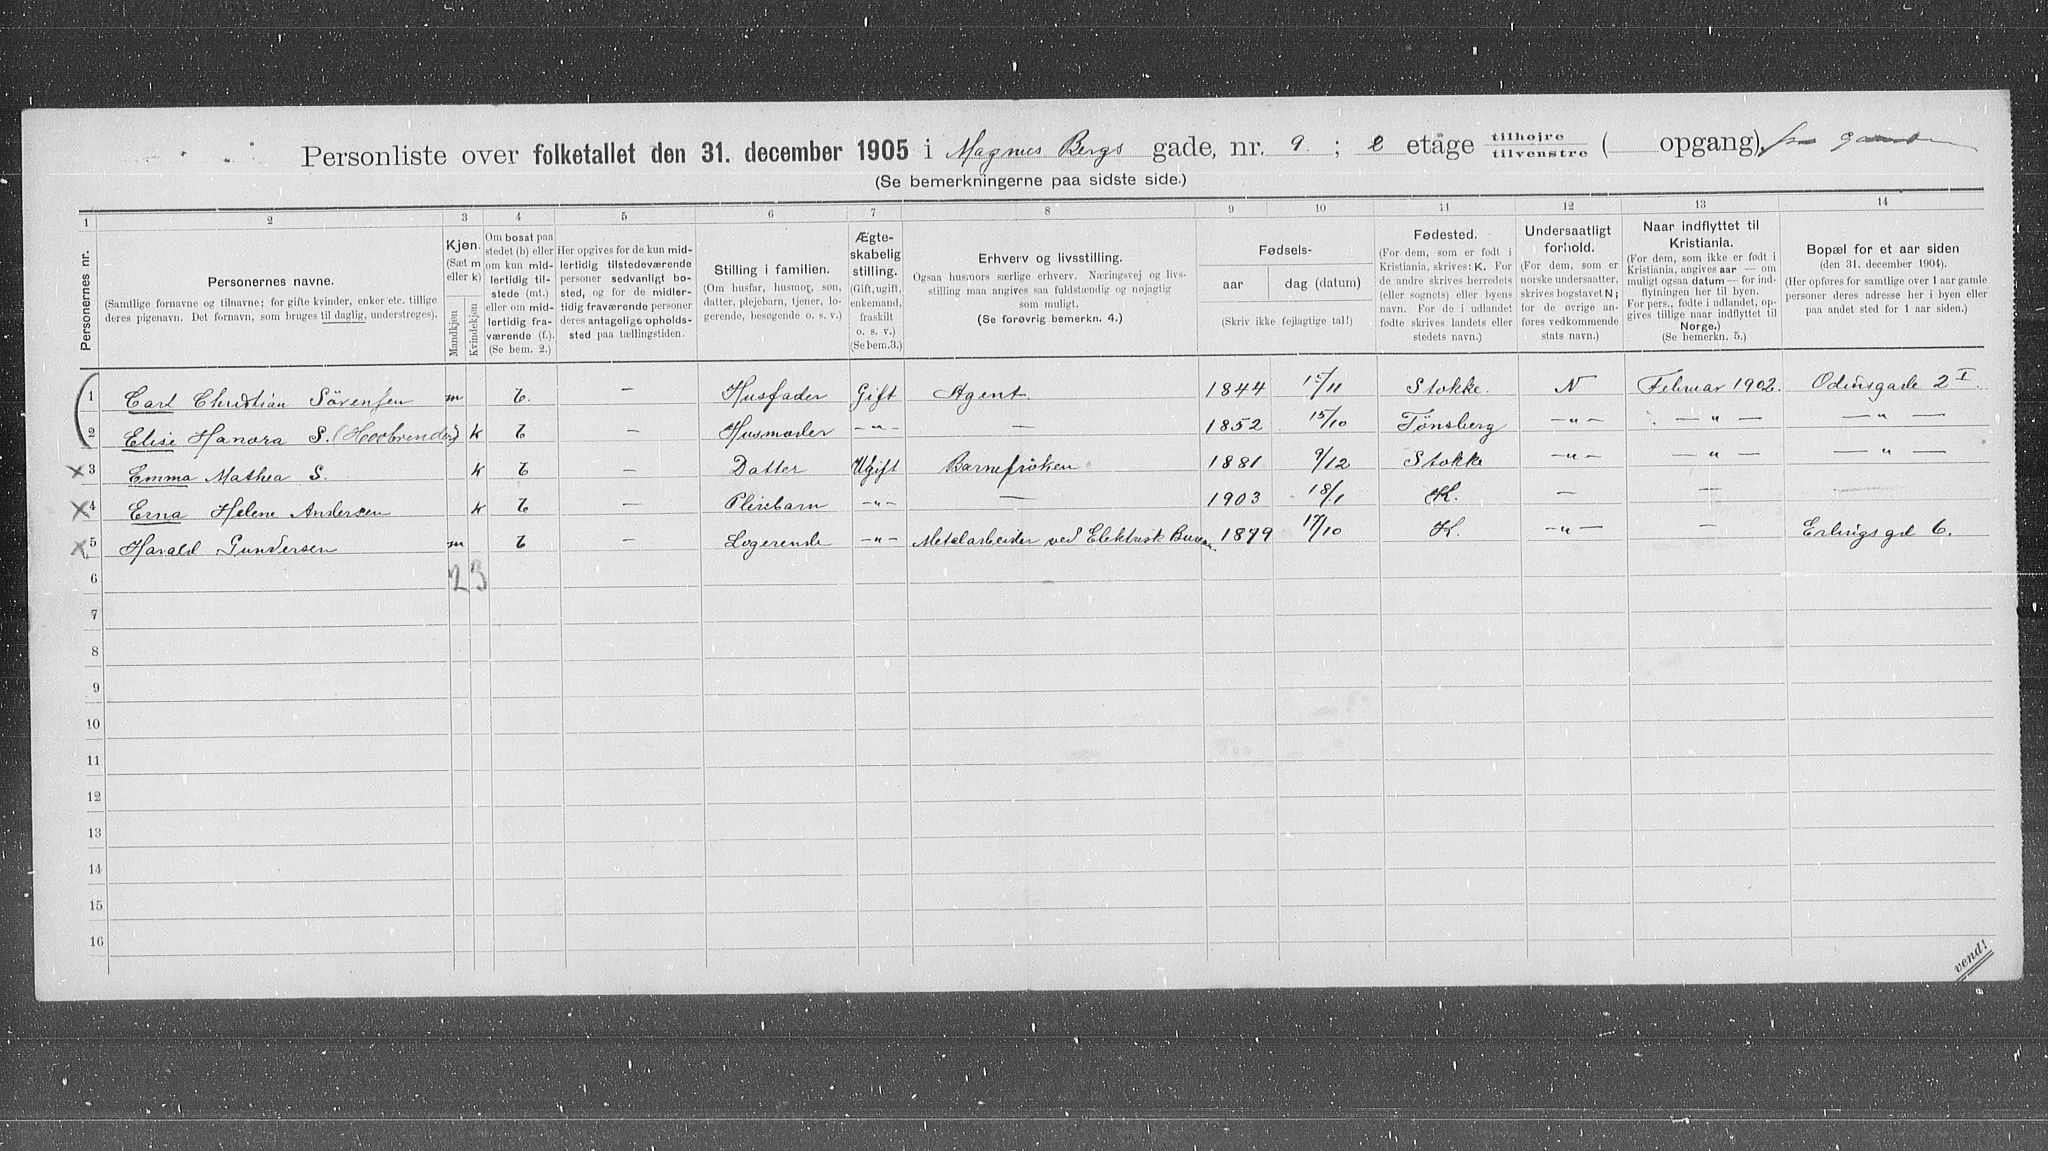 Personliste over folketallet den 31. december 1905 i Magnus Bergs gade, nr. 9. ; 2 etage tilhøjre / tilvenstre ( opgang),
(Se bemerkningerne paa sidste side.)
1 2 3 4 5 6 7 8 9 10 11 12 13 14
Personernes nr.
Personernes navne.
(Samtlige fornavne og tilnavne; for gifte kvinder, enker etc. tillige
deres pigenavn. Det fornavn, som bruges til daglig, understreges).
Kjøn.
(Sæt m
eller k)
Mandkjøn
Kvindekjøn
Om bosat paa
stedet (b) eller
om kun mid-
lertidig til-
stede (mt.)
eller om mid-
lertidig fra-
værende (f.).
(Se bem. 2.)
Her opgives for de kun mid-
lertidig tilstedeværende
personer sedvanligt bo-
sted, og for de midler-
tidig fraværende personer
deres antagelige opholds-
sted paa tællingstiden.
Stilling i familien.
(Om husfar, husmor, søn,
datter, plejebarn, tjener, lo-
gerende, besøgende o. s. v.)
Ægte-
skabelig
stilling.
(Gift, ugift,
enkemand,
fraskilt
o. s. v.)
(Se bem.3.)
Erhverv og livsstilling.
Ogsaa husmors særlige erhverv. Næringsvej og livs-
stilling maa angives saa fuldstændig og nøjagtig
som muligt.
(Se forøvrig bemerkn. 4.)
Fødsels-
aar dag (datum)
(Skriv ikke fejlagtige tal!)
Fødested.
(For dem, som er født i
Kristiania, skrives: K. For
de andre skrives herredets
(eller sognets) eller byens
navn. For de i udlandet
fødte skrives landets eller
stedets navn.)
Undersaatligt
forhold.
(For dem, som er
norske undersaatter,
skrives bogstavet N;
for de øvrige an-
føres vedkommende
stats navn.)
Naar indflyttet til
Kristiania.
(For dem, som ikke er født i
Kristiania, angives aar — om
muligt ogsaa datum — for ind-
flytningen her til byen.
For pers., fødte i udlandet, op-
gives tillige naar indflyttet til
Norge.)
(Se bemerkn. 5.)
Bopæl for et aar siden
(den 31. december 1904).
(Her opføres for samtlige over 1 aar gamle
personer deres adresse her i byen eller
paa andet sted for 1 aar siden.)
1 Carl Christian Sörensen m b. — Husfader Gift Agent. 1844 15/11 Stokke. N Februar 1902. Odinsgade 2 I.
2 Elise Hanora S. k b — Husmoder —"— — 1852 15/10 Tønsberg —"— —"— —"—
3 Emma Mathea S. k b — Datter Ugift Barnefrøken 1881 9/12 Stokke —"— —"— —"—
4 Erna Helene Andersen k b — Pleiebarn —"— — 1903 18/1 K. — —
5 Harald Gundersen m b — Logerende —"— Metalarbeider ved Elektrisk Bureau. 1879 17/10 K. —"— — Erlingsgd 6.
6 2 3
7
8
9
10
11
12
13
14
15
16
vend!